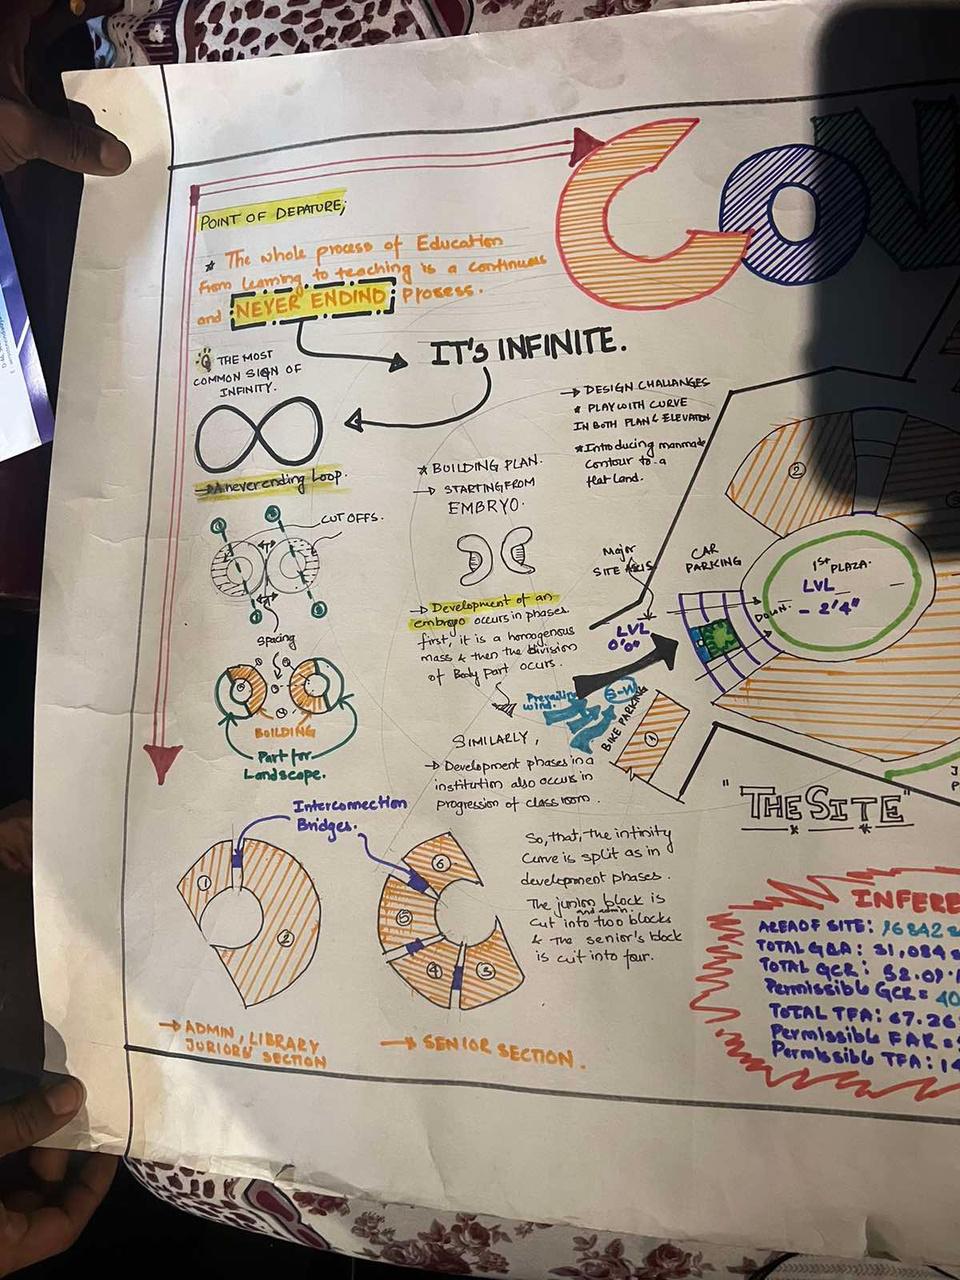 CON
POINT OF DEPATURE;
* The whole process of Education
from learning to teaching is a continuos
and NEVER ENDIND Process.
IT'S INFINITE.
THE MOST
COMMON SIGN OF
INFINITY.
→ A never ending Loop.
CUT OFFS.
spacing
BUILDING
Part for
Landscape.
→ DESIGN CHALLANGES
* PLAY WITH CURVE
IN BOTH PLAN & ELEVATION
* Introducing manmade
contour to a
flat land.
* BUILDING PLAN.
→ STARTING FROM
EMBRYO.
→ Development of an
embryo occurs in phases.
first, it is a homogenous
mass & then the division
of Body part occurs.
SIMILARLY,
→ Development phases in a
institution also occurs in
progression of class room.
Interconnection
Bridges.
1
2
6
5
4
3
→ ADMIN, LIBRARY
JURIORN SECTION
→ SENIOR SECTION.
So, that, the infinity
curve is split as in
development phases.
The junior and admin block is
cut into two blocks
& the senior's block
is cut into four.
Major
SITE AXIS
CAR
PARKING
2
1ST PLAZA.
LVL
- 2'4"
DOWN.
LVL
0'0"
Prevailing
wind.
S-W
BIKE PARKING
1
"THE SITE"
AREA OF SITE: 16842
TOTAL GCR:
Permissible GCR = 40
TOTAL TFA: 67.26
Permissible FAR =
Permissible TFA: 14